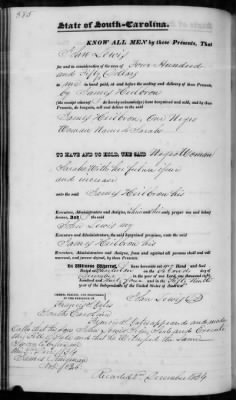 State of South-Carolina.
KNOW ALL MEN by these Presents, That
John Lewis
for and in consideration of the sum of Four Hundred
and Fifty Dollars
to me in hand paid, at and before the sealing and delivery of these Presents,
by James Heilbron
(the receipt whereof I do hereby acknowledge) have bargained and sold, and by these
Presents, do bargain, sell and deliver to the said
James Heilbron, One Negro
Woman Named Sarah
TO HAVE AND TO HOLD, THE SAID Negro Woman
Sarah With her future Issue
and increase
unto the said James Heilbron his
Executors, Administrators and Assigns, to his and their only proper use and behoof
forever. And I the said
John Lewis my
Executors and Administrators, the said bargained premises, unto the said
James Heilbron his
Executors, Administrators and Assigns, from and against all persons shall and will
warrant, and forever defend, by these Presents.
In Witness Whereof, I have hereunto set my Hand and Seal
Dated at Charleston on the day of
December in the year of our Lord, one thousand eight
hundred and thirty four and in the fifty ninth
year of the Independence of the United States of America.
SIGNED, SEALED, AND DELIVERED
IN THE PRESENCE OF
John Lewis
South Carolina
appeared and made
Oath that he saw John Lewis Sign, Seal and Execute
and that he Witnessed the same
1834
Recorded December 1834